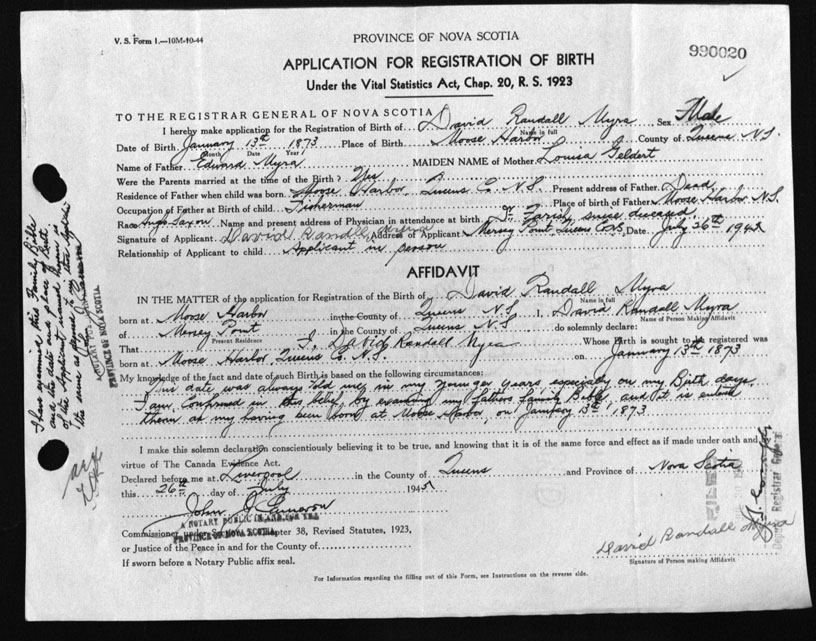 V. S. Form 1.—10M-10-44
PROVINCE OF NOVA SCOTIA
990020
APPLICATION FOR REGISTRATION OF BIRTH
Under the Vital Statistics Act, Chap. 20, R. S. 1923
TO THE REGISTRAR GENERAL OF NOVA SCOTIA
I hereby make application for the Registration of Birth of David Randall Myra Sex Male
Name in full
Date of Birth January 13th 1873 Place of Birth Moose Harbor County of Queens N.S.
Month Date Year
Name of Father Edward Myra MAIDEN NAME of Mother Louisa Geldert
Were the Parents married at the time of the Birth? Yes
Residence of Father when child was born Moose Harbor Queens Co. N.S. Present address of Father Dead
Occupation of Father at Birth of child Fisherman Place of birth of Father Moose Harbor N.S.
Race Anglo Saxon Name and present address of Physician in attendance at birth Dr. Farish, since deceased
Signature of Applicant David Randall Myra Address of Applicant Mersey Point Queens Co NS, Date July 26th 1945
Relationship of Applicant to child Applicant in person
AFFIDAVIT
IN THE MATTER of the application for Registration of the Birth of David Randall Myra
Name in full
born at Moose Harbor in the County of Queens N.S. I, David Randall Myra
Name of Person Making Affidavit
of Mersey Point in the County of Queens N.S. do solemnly declare:
Present Residence
That I, David Randall Myra Whose Birth is sought to be registered was
born at Moose Harbor, Queens Co. N.S. on January 13th 1873
My knowledge of the fact and date of such Birth is based on the following circumstances:
This date was always told me in my younger years especially on my Birth days
I am confirmed in this belief by examining my fathers family Bible and it is entered
therein as my having been born at Moose Harbor, on January 13th 1873
I make this solemn declaration conscientiously believing it to be true, and knowing that it is of the same force and effect as if made under oath and
virtue of The Canada Evidence Act.
Declared before me at Liverpool in the County of Queens and Province of Nova Scotia
this 26th day of July 1945
John J Cameron
A NOTARY PUBLIC IN AND FOR THE
PROVINCE OF NOVA SCOTIA
Commissioner under Chapter 38, Revised Statutes, 1923,
or Justice of the Peace in and for the County of
If sworn before a Notary Public affix seal.
David Randall Myra
Signature of Person making Affidavit
For Information regarding the filling out of this Form, see Instructions on the reverse side.
I have examined this Family Bible
and the date and place of Birth
of the Applicant
the same as
PROVINCE OF NOVA SCOTIA
Deputy Registrar General